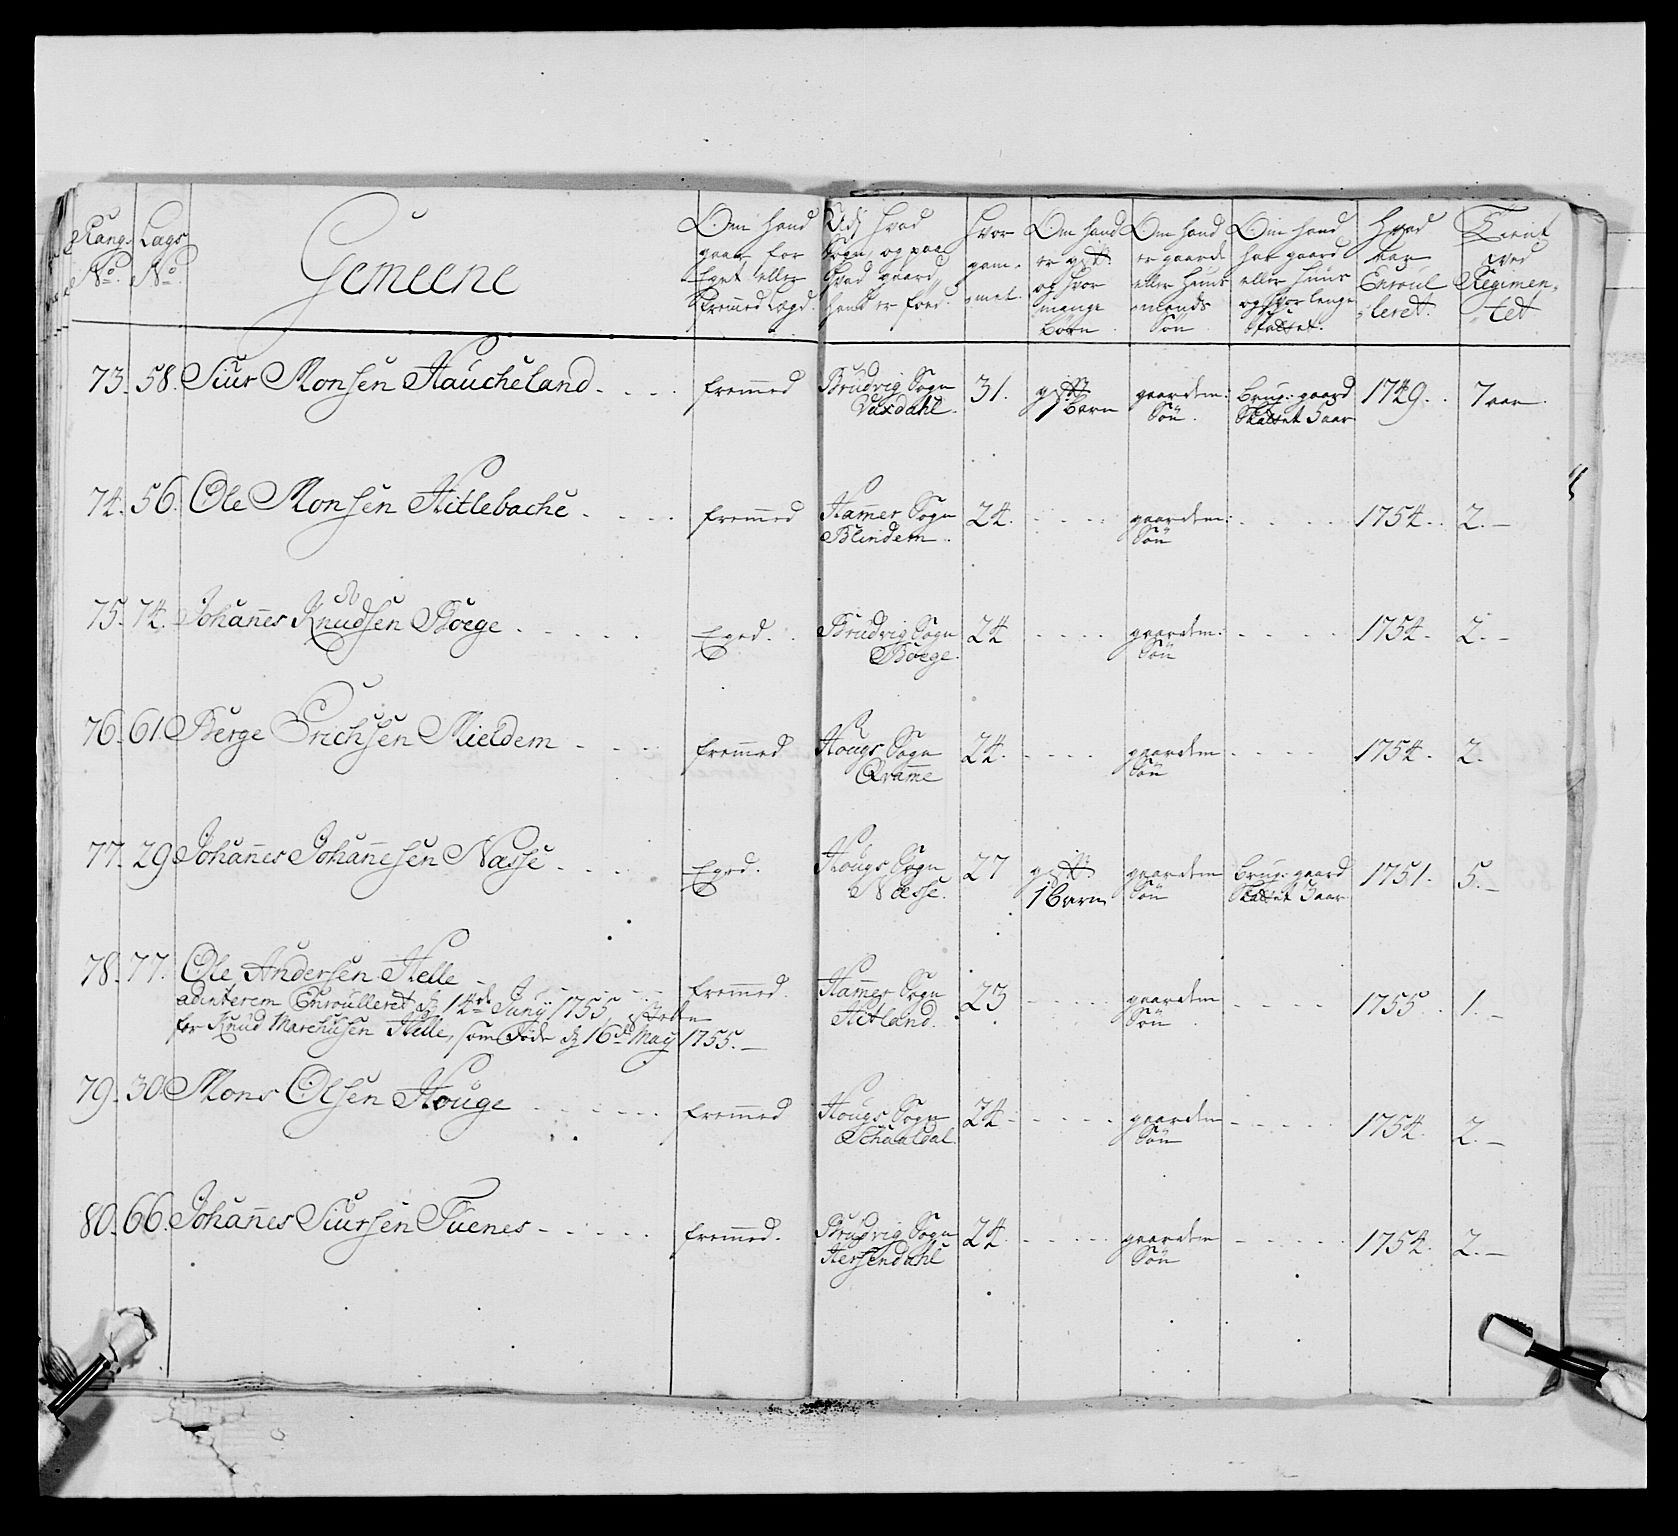 Rang No. Lags No. Gemeene Om hand gaar for Eget eller Fremmed Lægd. Udj hvad Sogn, og paa hvad gaard, hand er föed. Hvor gam-mel. Om hand er gift og hvor mange börn Om hand er gaards eller Huus mands Søn Om hand har gaard eller Huus og hvor lenge skattet. Hvad aar Enroulleret. Tient ved Regimentet
73. 58. Siur Monsen Haucheland fremmed Brudvig Sogn Vaxdahl. 31. gift 1 Barn gaardm: Sön. Brug: gaard Skattet 3 aar 1749. 7 aar.
74. 56. Ole Monsen Hitlebache fremmed Hamer Sogn Blindem. 24. gaardm: Sön 1754. 2.
75. 74. Johannes Knudsen Boege Eged. Brudvig Sogn Boege. 24 gaardm: Sön 1754. 2.
76. 61. Berge Erichsen Mieldem fremmed Hougs Sogn Qvame 24. gaardm Sön 1754. 2.
77. 29 Johannes Johannesen Næsse Eged. Hougs Sogn Næsse. 27 gift 1 Barn gaardm Sön Brug: gaard Skattet 3 aar 1751. 5.
78. 77. Ole Andersen Helle fremmed. Hamer Sogn Hitland. 23 gaardm Sön 1755. 1.
adinterem Enroulleret d. 14de Juny 1755,
for Knud Marchusen Helle, som Döde d. 16de May 1755.
79. 30. Mons Olsen Houge fremmed Hougs Sogn Schaaldal. 24 gaardm Sön 1754. 2.
80. 66. Johannes Siursen Tuenes fremmed. Brudvig Sogn Hersendahl 24. gaardm Sön 1754. 2.